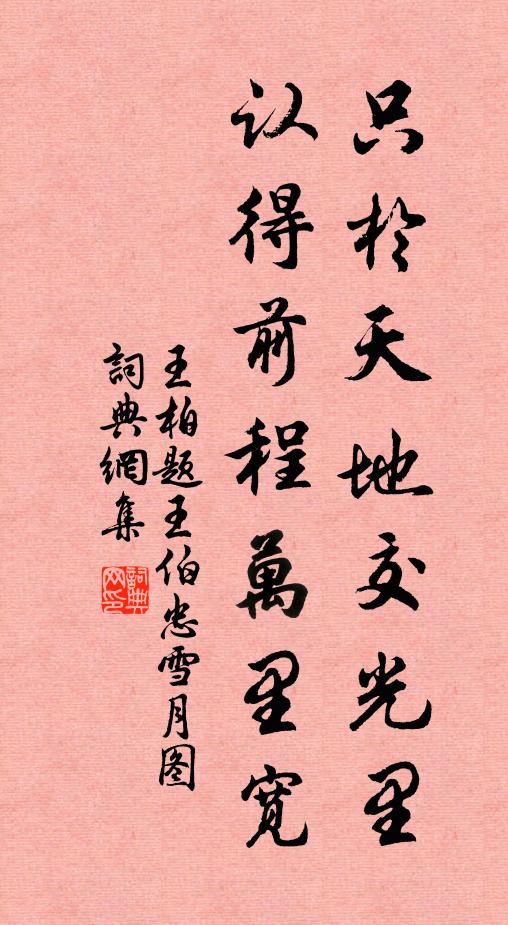 只於天地交光里
认得前程萬里寬
王柏题王伯忠雪月图
詞典網集
詞典网印